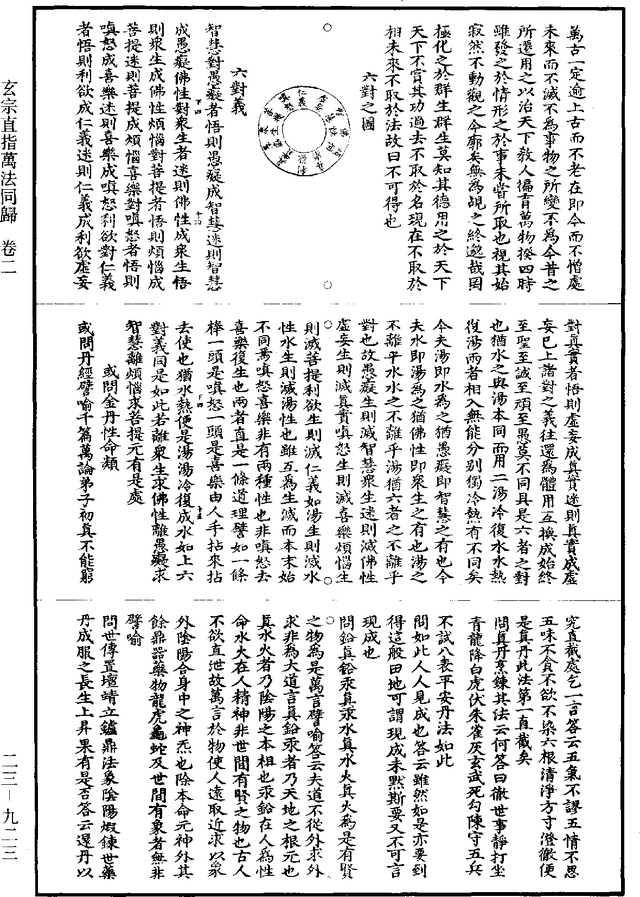 萬古一定逾上古而不老在即今而不憎處
未來而不滅不為事物之所變不為今昔之
所遷用之以治天下教人徧育萬物揆四時
雖發之於情形之於事未嘗所取也視其始
寂然不動觀之今廓矣無為覘之終邈哉罔
極化之於群生群生莫知其德用之於天下
天下不賞其功過去不取於名現在不取於
相未來不取於法故曰不可得也
六對之圖
六對義
智慧對愚癡者悟則愚癡成智慧迷則智慧
成愚癡佛性對眾生者迷則佛性成眾生悟
則眾生成佛性煩惱對菩提者悟則煩惱成
菩提迷則菩提成煩惱喜樂對嗔怒者悟則
嗔怒成喜樂迷則喜樂成嗔怒利欲對仁義
者悟則利欲成仁義迷則仁義成利欲虛妄
對真實者悟則虛妄成真實迷則真實成虛
妄已上諸對之義往還為體用互換成始終
至聖至誠至頑至愚莫不同具是六者之對
也猶水之與湯本同而用二湯冷復水水熱
復湯兩者相入無能分別獨冷熱有不同矣
今夫湯即水為之猶愚癡即智慧之有也今
夫水即湯為之猶佛性即眾生之有也湯之
不離乎水水之不離乎湯猶六者之不離乎
對也故愚癡生則滅智慧眾生迷則滅佛性
虛妄生則滅真實嗔怒生則滅喜樂煩惱生
則滅菩提利欲生則滅仁義如湯生則滅水
性水生則滅湯性也雖互為生滅而本末始
不同焉嗔怒喜樂非有兩種性也非嗔怒去
喜樂復生也兩者直是一條道理譬如一條
棒一頭是嗔怒一頭是喜樂由人手拈來拈
去使也猶水熱便是湯湯冷復成水如上六
對義同是如此若離眾生求佛性離愚癡求
智慧離煩惱求菩提元有是處
或問金丹性命類
或問丹經譬喻千篇萬論弟子初真不能窮
究直截處乞一言答云五氣不謬五情不思
五味不貪不欲不染六根清淨方寸澄徹便
是真丹此法第一直截矣
問真丹烹鍊其法云何答曰徹世事靜打坐
青龍降白虎伏朱雀灰玄武死勾陳守五兵
不試八表平安丹法如此
問如此人人見成也答云雖然如是亦要到
得這般田地可謂現成未默斯要又不可言
現成也
問鉛真鉛汞真汞水真水火真火為是有賢
之物為是萬言譬喻答云夫道不從外求外
求非為大道言真鉛汞者乃天地之根元也
真水火者乃陰陽之本相也汞鉛在人為性
命水火在人精神非世間有賢之物也古人
不欲直泄故萬言於物使人遠取近求以眾
外陰陽合身中之神炁也除本命元神外其
餘鼎器藥物龍虎龜蛇及世間有象者無非
譬喻
問世傳置壇靖立鑪鼎法象陰陽煅鍊世藥
丹成服之長生上昇果有是否答云還丹以
玄宗直指萬法同歸 卷二
二三—九二三